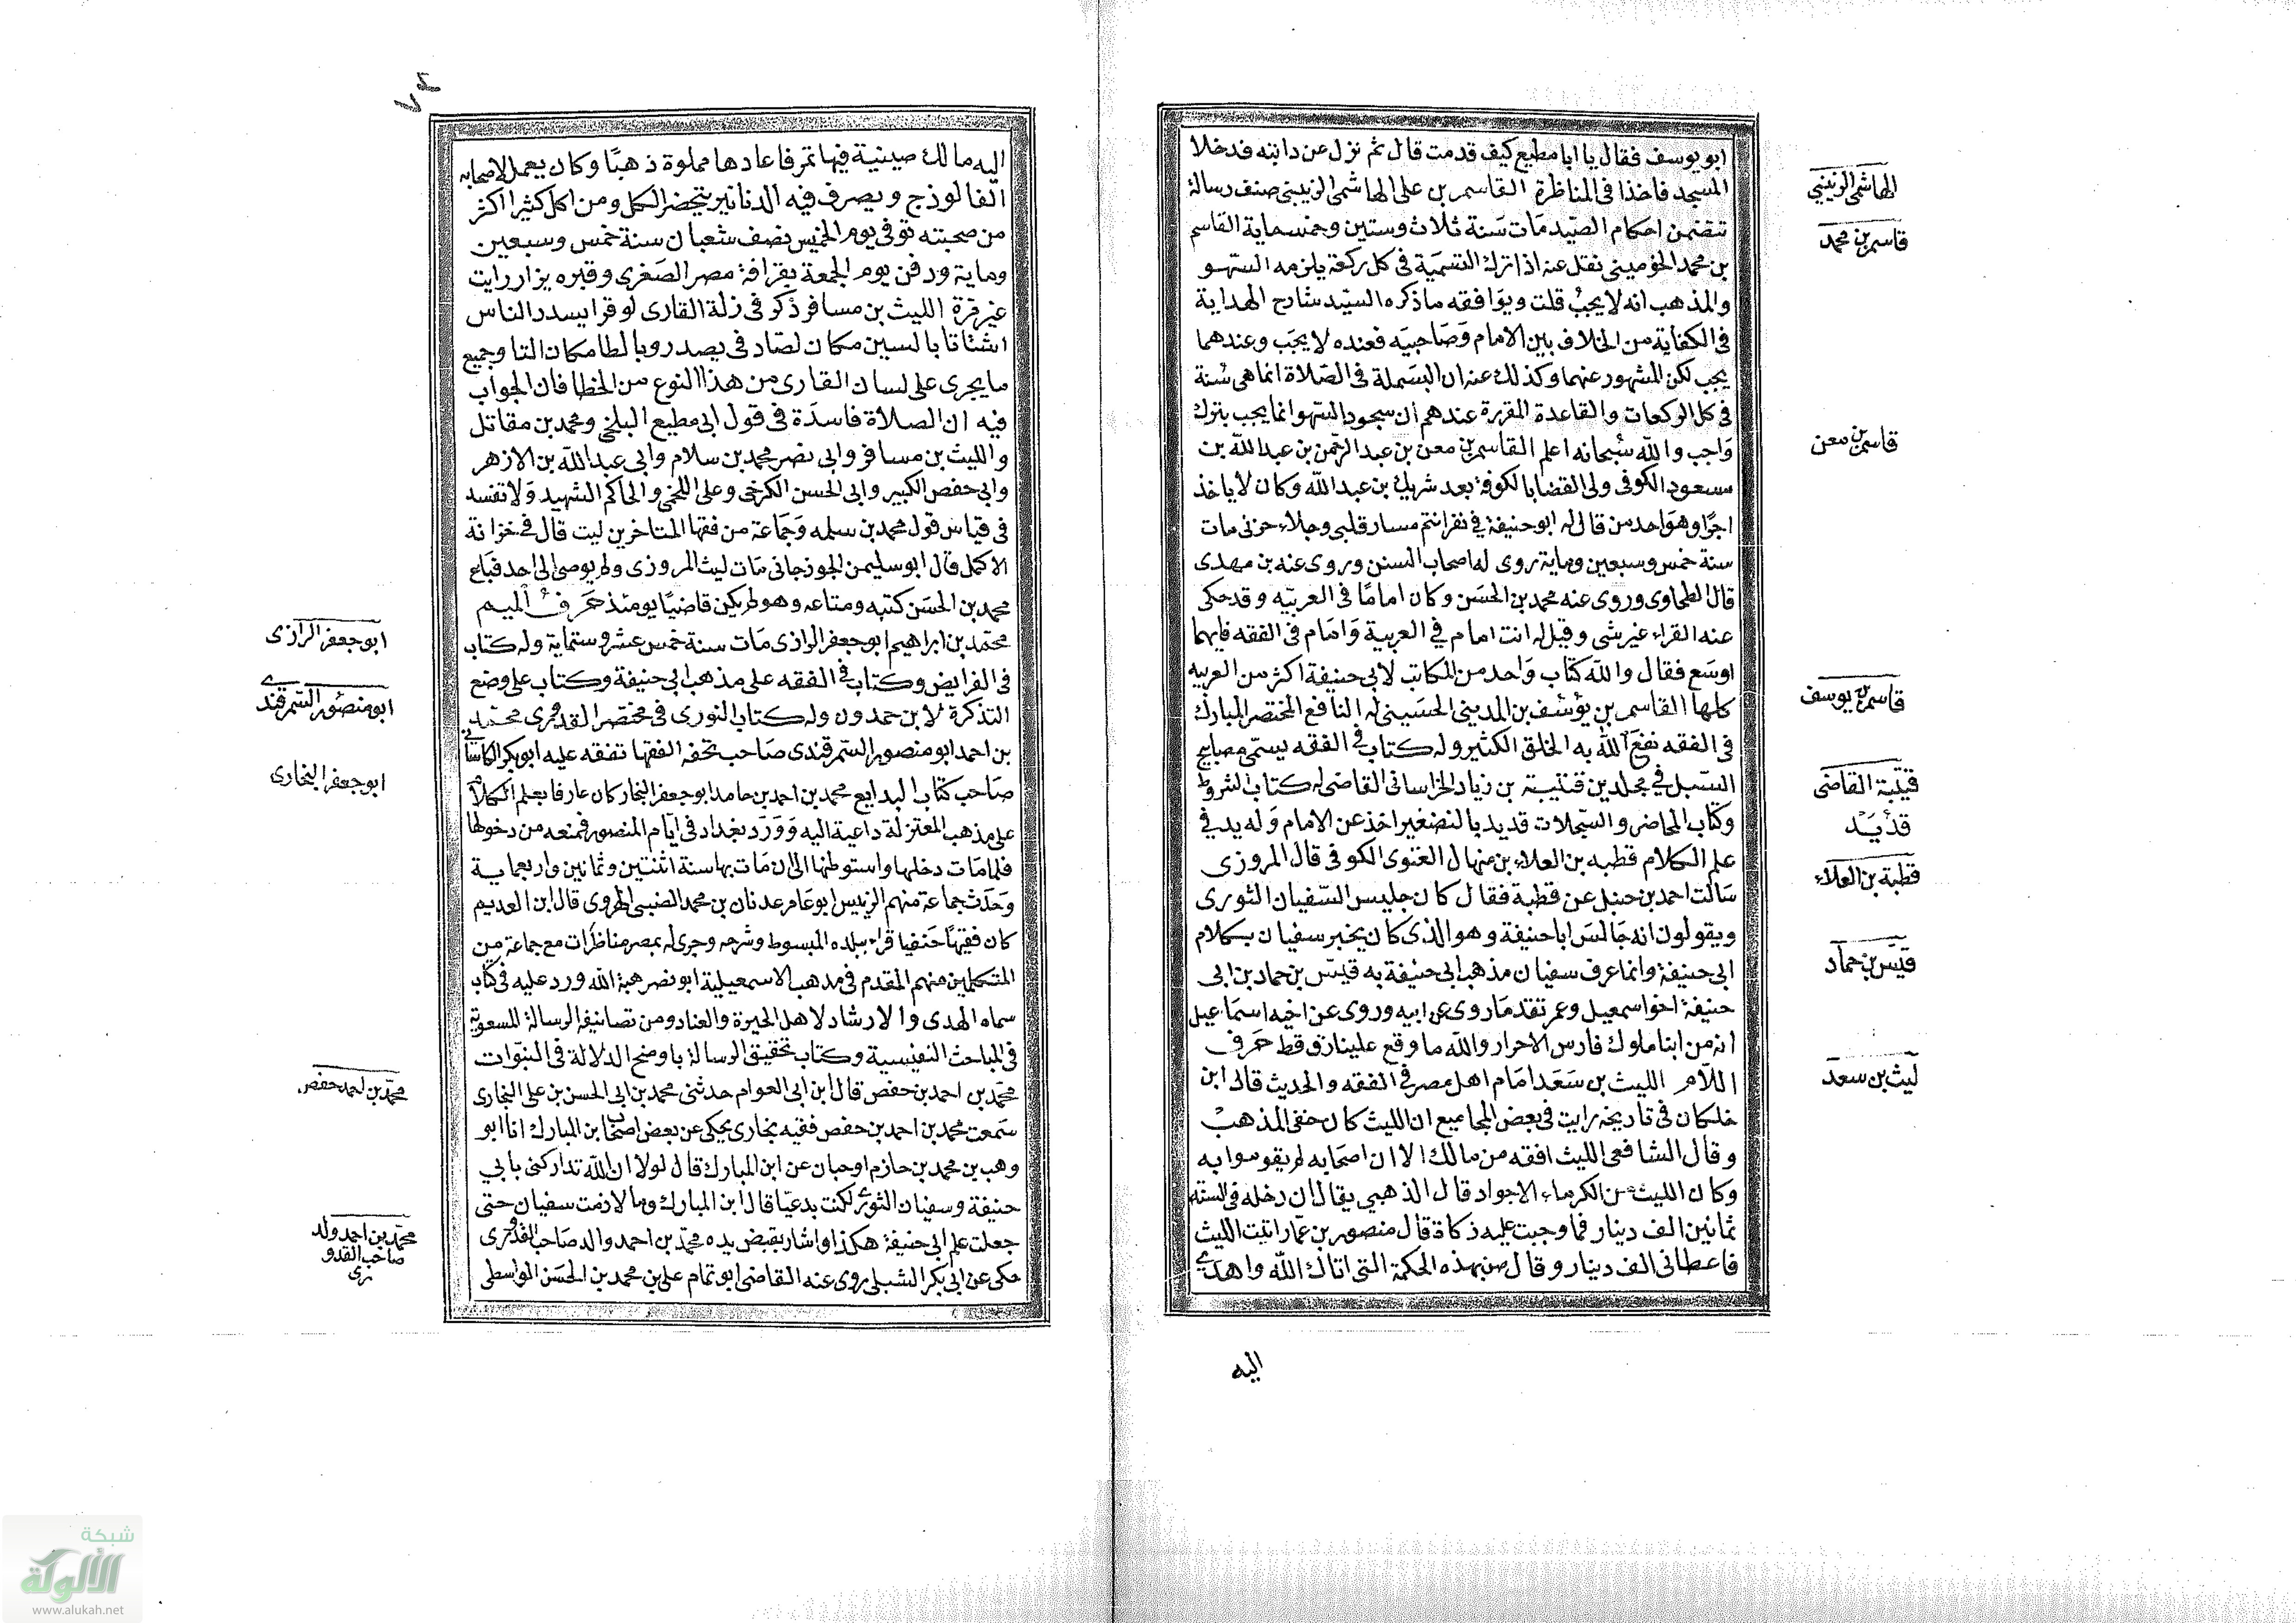 ابو يوسف فقال يا ابا مطيع كيف قدمت قال ثم نزل عن دابته فدخلا
المسجد فاخذا في المناظرة القاسم بن علي الهاشمي الزينبي صنف رسالة
تتضمن احكام الصيد مات سنة ثلاث وستين وخمسماية القاسم
بن محمد نقل عنه اذا ترك التسمية في كل ركعة يلزمه السهو
والمذهب انه لا يجب قلت ويوافقه ما ذكره السيد شارح الهداية
في الكفاية من الخلاف بين الامام وصاحبيه فعنده لا يجب وعندهما
يجب لكن المشهور عنهما وكذلك عنه ان البسملة في الصلاة انما هي سنة
في كل الركعات والقاعدة المقررة عندهم ان سجود السهو انما يجب بترك
واجب والله سبحانه اعلم القاسم بن معن بن عبد الرحمن بن عبد الله بن
مسعود الكوفي ولي القضا بالكوفة بعد شريك بن عبد الله وكان لا ياخذ
اجرا وهو احد من قال له ابو حنيفة في نفر انتم مسار قلبي وجلاء حزني مات
سنة خمس وسبعين وماية روى له اصحاب السنن وروى عنه بن مهدي
قال الطحاوي وروى عنه محمد بن الحسن وكان اماما في العربيه وقد حكى
عنه الفراء غير شي وقيل له انت امام في العربية وامام في الفقه فايهما
اوسع فقال والله كتاب واحد من المكاتب لابي حنيفة اكثر من العربيه
كلها القاسم بن يوسف بن المديني الحسيني له النافع المختصر المبارك
في الفقه نفع الله به الخلق الكثير وله كتاب في الفقه يسمى مصابيح
السبل في مجلدين قتيبة بن زياد الخراساني القاضي له كتاب الشروط
وكتاب المحاضر والسجلات قديد بالتصغير اخذ عن الامام وله يد في
علم الكلام قطبه بن العلاء بن منهال الغنوي الكوفي قال المروزي
سالت احمد بن حنبل عن قطبة فقال كان جليس السفيان الثوري
ويقولون انه جالس ابا حنيفة وهو الذي كان يخبر سفيان بكلام
ابي حنيفة وانما عرف سفيان مذهب ابي حنيفة به قيس بن حماد بن ابي
حنيفة اخو اسمعيل وعمر تقدما روى عن ابيه وروى عن اخيه اسماعيل
انه من ابنا ملوك فارس الاحرار والله ما وقع علينا رق قط حرف
اللام الليث بن سعد امام اهل مصر في الفقه والحديث قال ابن
خلكان في تاريخه رايت في بعض المجاميع ان الليث كان حنفي المذهب
وقال الشافعي الليث افقه من مالك الا ان اصحابه لم يقوموا به
وكان الليث من الكرماء الاجواد قال الذهبي يقال ان دخله في السنة
ثمانين الف دينار فما وجبت عليه زكاة قال منصور بن عمار اتيت الليث
فاعطاني الف دينار وقال صن بهذه الحكمة التي اتاك الله واهدى
اليه
الهاشمي الزينبي
قاسم بن محمد
قاسم بن معن
قاسم بن يوسف
قتيبة القاضي
قديد
قطبة بن العلاء
قيس بن حماد
ليث بن سعد
٧٤
اليه مالك صينية فيها تمر فاعادها مملوة ذهبا وكان يعمل لاصحابه
الفالوذج ويصرف فيه الدنانير يتحضر الكل ومن اكل كثيرا اكثر
من صحبته توفي يوم الخميس نصف شعبان سنة خمس وسبعين
وماية ودفن يوم الجمعة بقرافة مصر الصغرى وقبره يزار رايت
غير مرة الليث بن مسافر ذكر في زلة القارى لو قرا يسدر الناس
اشتاتا بالسين مكان لصاد في يصدر وبالطا مكان التا وجميع
ما يجري على لسان القارى من هذا النوع من الخطا فان الجواب
فيه ان الصلاة فاسدة في قول ابي مطيع البلخي ومحمد بن مقاتل
والليث بن مسافر وابي نصر محمد بن سلام وابي عبد الله بن الازهر
وابي حفص الكبير وابي الحسن الكرخي وعلي اللخمي والحاكم الشهيد ولا تفسد
في قياس قول محمد بن سلمه وجماعة من فقها المتاخرين ليث قال في خزانة
الاكمل قال ابو سليمن الجوزجاني مات ليث المروزي ولم يوصي الى احد فباع
محمد بن الحسن كتبه ومتاعه وهو لم يكن قاضيا يومئذ حرف الميم
محمد بن ابراهيم ابو جعفر الرازي مات سنة خمس عشر وستماية وله كتاب
في الفرايض وكتاب في الفقه على مذهب ابي حنيفة وكتاب على وضع
التذكرة لابن حمدون وله كتاب النورى في مختصر القدوري محمد
بن احمد ابو منصور السمرقندي صاحب تحفه الفقها تفقه عليه ابو بكر الكاساني
صاحب كتاب البدايع محمد بن احمد بن حامد ابو جعفر البخار كان عارفا بعلم الكلام
على مذهب المعتزلة داعية اليه وورد بغداد في ايام المنصور فمنعه من دخولها
فلما مات دخلها واستوطنها الى ان مات بها سنة اثنتين وثمانين واربعماية
وحدث جماعة منهم الرئيس ابو عامر عدنان بن محمد الضبي الهروي قال ابن العديم
كان فقيها حنفيا قراء ببلده المبسوط وشرحه وجرى له بمصر مناظرات مع جماعة من
المتكلمين منهم المقدم في مذهب الاسمعيلية ابو نصر هبة الله ورد عليه في كتاب
سماه الهدى والارشاد لاهل الحيرة والعناد ومن تصانيفه الرسالة المسعوية
في المباحث النفيسية وكتاب تحقيق الرسالة باوضح الدلالة في النبوات
محمد بن احمد بن حفص قال ابن ابي العوام حدثني محمد بن ابي الحسن بن علي البخاري
سمعت محمد بن احمد بن حفص فقيه بخارى يحكي عن بعض اصحاب ابن المبارك انا ابو
وهب بن محمد بن حازم اوحبان عن ابن المبارك قال لولا ان الله تداركني بابي
حنيفة وسفيان الثوري لكنت بدعيا قال ابن المبارك وما لازمت سفيان حتى
جعلت علم ابي حنيفة هكذا واشار بقبض يده محمد بن احمد والد صاحب القدوري
حكى عن ابي بكر الشبلي روى عنه القاضي ابو تمام علي بن محمد بن الحسن الواسطي
ابو جعفر الرازي
ابو منصور السمرقندي
ابو جعفر البخاري
محمد بن احمد حفص
محمد بن احمد ولد
صاحب القدو
رى
شبكة
الألوكة
www.alukah.net